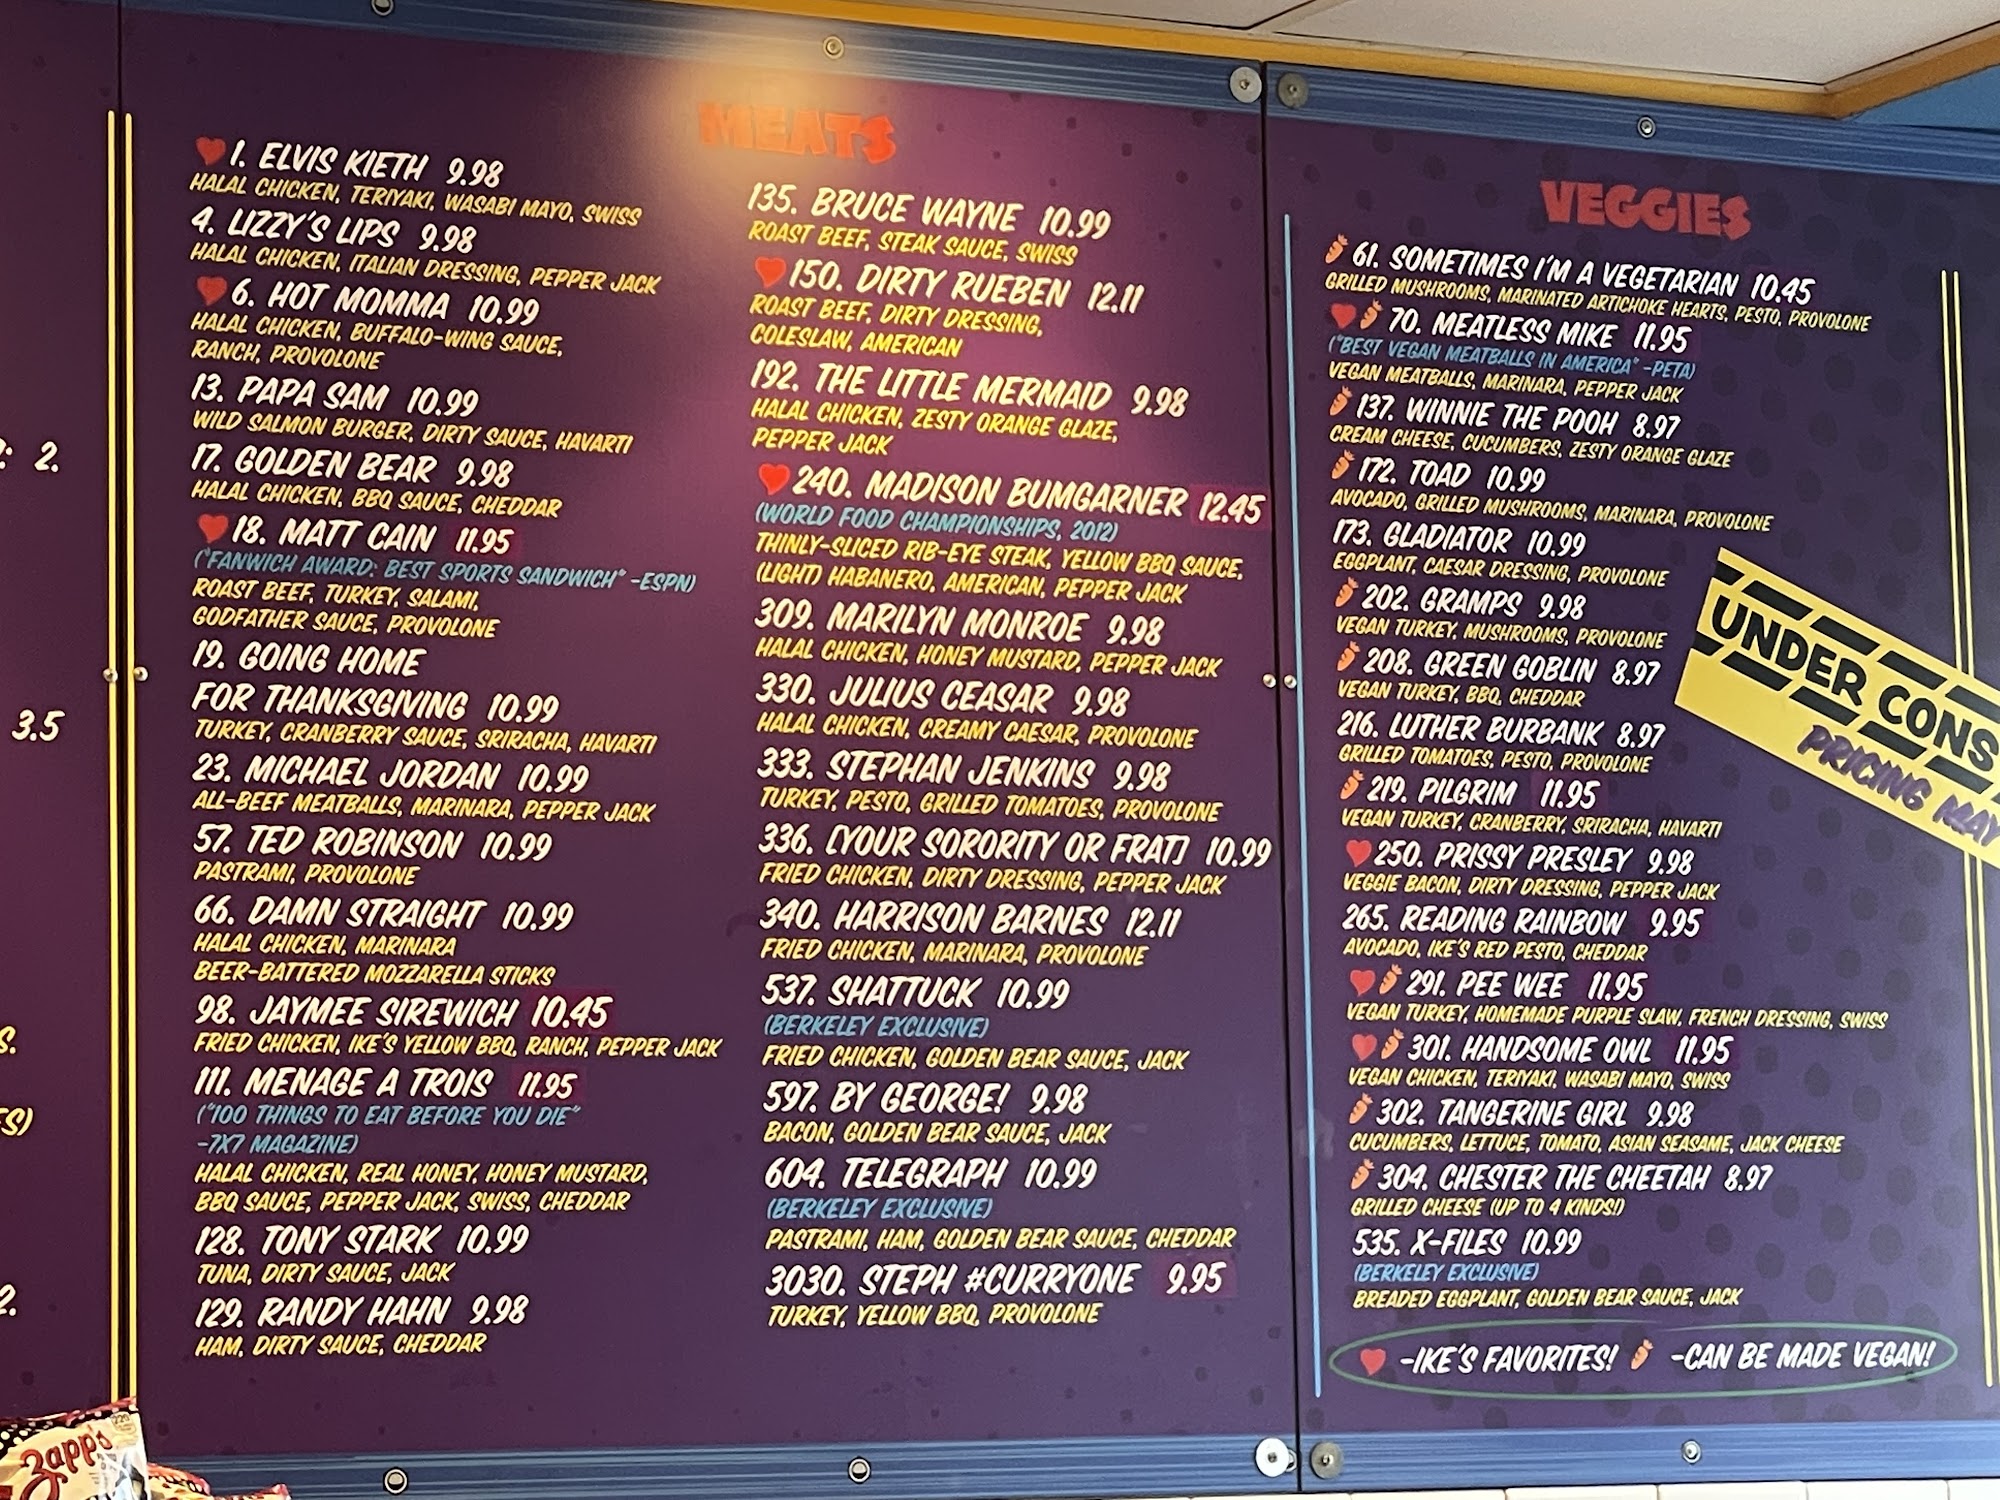 MEATS
1. ELVIS KIETH 9.98
HALAL CHICKEN, TERIYAKI, WASABI MAYO, SWISS
4. LIZZY'S LIPS 9.98
HALAL CHICKEN, ITALIAN DRESSING, PEPPER JACK
6. HOT MOMMA 10.99
HALAL CHICKEN, BUFFALO-WING SAUCE,
RANCH, PROVOLONE
13. PAPA SAM 10.99
WILD SALMON BURGER, DIRTY SAUCE, HAVARTI
17. GOLDEN BEAR 9.98
HALAL CHICKEN, BBQ SAUCE, CHEDDAR
18. MATT CAIN 11.95
("FANWICH AWARD: BEST SPORTS SANDWICH" -ESPN)
ROAST BEEF, TURKEY, SALAMI,
GODFATHER SAUCE, PROVOLONE
19. GOING HOME
FOR THANKSGIVING 10.99
TURKEY, CRANBERRY SAUCE, SRIRACHA, HAVARTI
23. MICHAEL JORDAN 10.99
ALL-BEEF MEATBALLS, MARINARA, PEPPER JACK
57. TED ROBINSON 10.99
PASTRAMI, PROVOLONE
66. DAMN STRAIGHT 10.99
HALAL CHICKEN, MARINARA
BEER-BATTERED MOZZARELLA STICKS
98. JAYMEE SIREWICH 10.45
FRIED CHICKEN, IKE'S YELLOW BBQ, RANCH, PEPPER JACK
111. MENAGE A TROIS 11.95
("100 THINGS TO EAT BEFORE YOU DIE"
-7X7 MAGAZINE)
HALAL CHICKEN, REAL HONEY, HONEY MUSTARD,
BBQ SAUCE, PEPPER JACK, SWISS, CHEDDAR
128. TONY STARK 10.99
TUNA, DIRTY SAUCE, JACK
129. RANDY HAHN 9.98
HAM, DIRTY SAUCE, CHEDDAR
135. BRUCE WAYNE 10.99
ROAST BEEF, STEAK SAUCE, SWISS
150. DIRTY RUEBEN 12.11
ROAST BEEF, DIRTY DRESSING,
COLESLAW, AMERICAN
192. THE LITTLE MERMAID 9.98
HALAL CHICKEN, ZESTY ORANGE GLAZE,
PEPPER JACK
240. MADISON BUMGARNER 12.45
(WORLD FOOD CHAMPIONSHIPS, 2012)
THINLY-SLICED RIB-EYE STEAK, YELLOW BBQ SAUCE,
(LIGHT) HABANERO, AMERICAN, PEPPER JACK
309. MARILYN MONROE 9.98
HALAL CHICKEN, HONEY MUSTARD, PEPPER JACK
330. JULIUS CEASAR 9.98
HALAL CHICKEN, CREAMY CAESAR, PROVOLONE
333. STEPHAN JENKINS 9.98
TURKEY, PESTO, GRILLED TOMATOES, PROVOLONE
336. [YOUR SORORITY OR FRAT] 10.99
FRIED CHICKEN, DIRTY DRESSING, PEPPER JACK
340. HARRISON BARNES 12.11
FRIED CHICKEN, MARINARA, PROVOLONE
537. SHATTUCK 10.99
(BERKELEY EXCLUSIVE)
FRIED CHICKEN, GOLDEN BEAR SAUCE, JACK
597. BY GEORGE! 9.98
BACON, GOLDEN BEAR SAUCE, JACK
604. TELEGRAPH 10.99
(BERKELEY EXCLUSIVE)
PASTRAMI, HAM, GOLDEN BEAR SAUCE, CHEDDAR
3030. STEPH #CURRYONE 9.95
TURKEY, YELLOW BBQ, PROVOLONE
VEGGIES
61. SOMETIMES I'M A VEGETARIAN 10.45
GRILLED MUSHROOMS, MARINATED ARTICHOKE HEARTS, PESTO, PROVOLONE
70. MEATLESS MIKE 11.95
("BEST VEGAN MEATBALLS IN AMERICA" -PETA)
VEGAN MEATBALLS, MARINARA, PEPPER JACK
137. WINNIE THE POOH 8.97
CREAM CHEESE, CUCUMBERS, ZESTY ORANGE GLAZE
172. TOAD 10.99
AVOCADO, GRILLED MUSHROOMS, MARINARA, PROVOLONE
173. GLADIATOR 10.99
EGGPLANT, CAESAR DRESSING, PROVOLONE
202. GRAMPS 9.98
VEGAN TURKEY, MUSHROOMS, PROVOLONE
208. GREEN GOBLIN 8.97
VEGAN TURKEY, BBQ, CHEDDAR
216. LUTHER BURBANK 8.97
GRILLED TOMATOES, PESTO, PROVOLONE
219. PILGRIM 11.95
VEGAN TURKEY, CRANBERRY, SRIRACHA, HAVARTI
250. PRISSY PRESLEY 9.98
VEGGIE BACON, DIRTY DRESSING, PEPPER JACK
265. READING RAINBOW 9.95
AVOCADO, IKE'S RED PESTO, CHEDDAR
291. PEE WEE 11.95
VEGAN TURKEY, HOMEMADE PURPLE SLAW, FRENCH DRESSING, SWISS
301. HANDSOME OWL 11.95
VEGAN CHICKEN, TERIYAKI, WASABI MAYO, SWISS
302. TANGERINE GIRL 9.98
CUCUMBERS, LETTUCE, TOMATO, ASIAN SEASAME, JACK CHEESE
304. CHESTER THE CHEETAH 8.97
GRILLED CHEESE (UP TO 4 KINDS!)
535. X-FILES 10.99
(BERKELEY EXCLUSIVE)
BREADED EGGPLANT, GOLDEN BEAR SAUCE, JACK
-IKE'S FAVORITES! -CAN BE MADE VEGAN!
UNDER CONS
PRICING MAY
2.
3.5
Zapp's